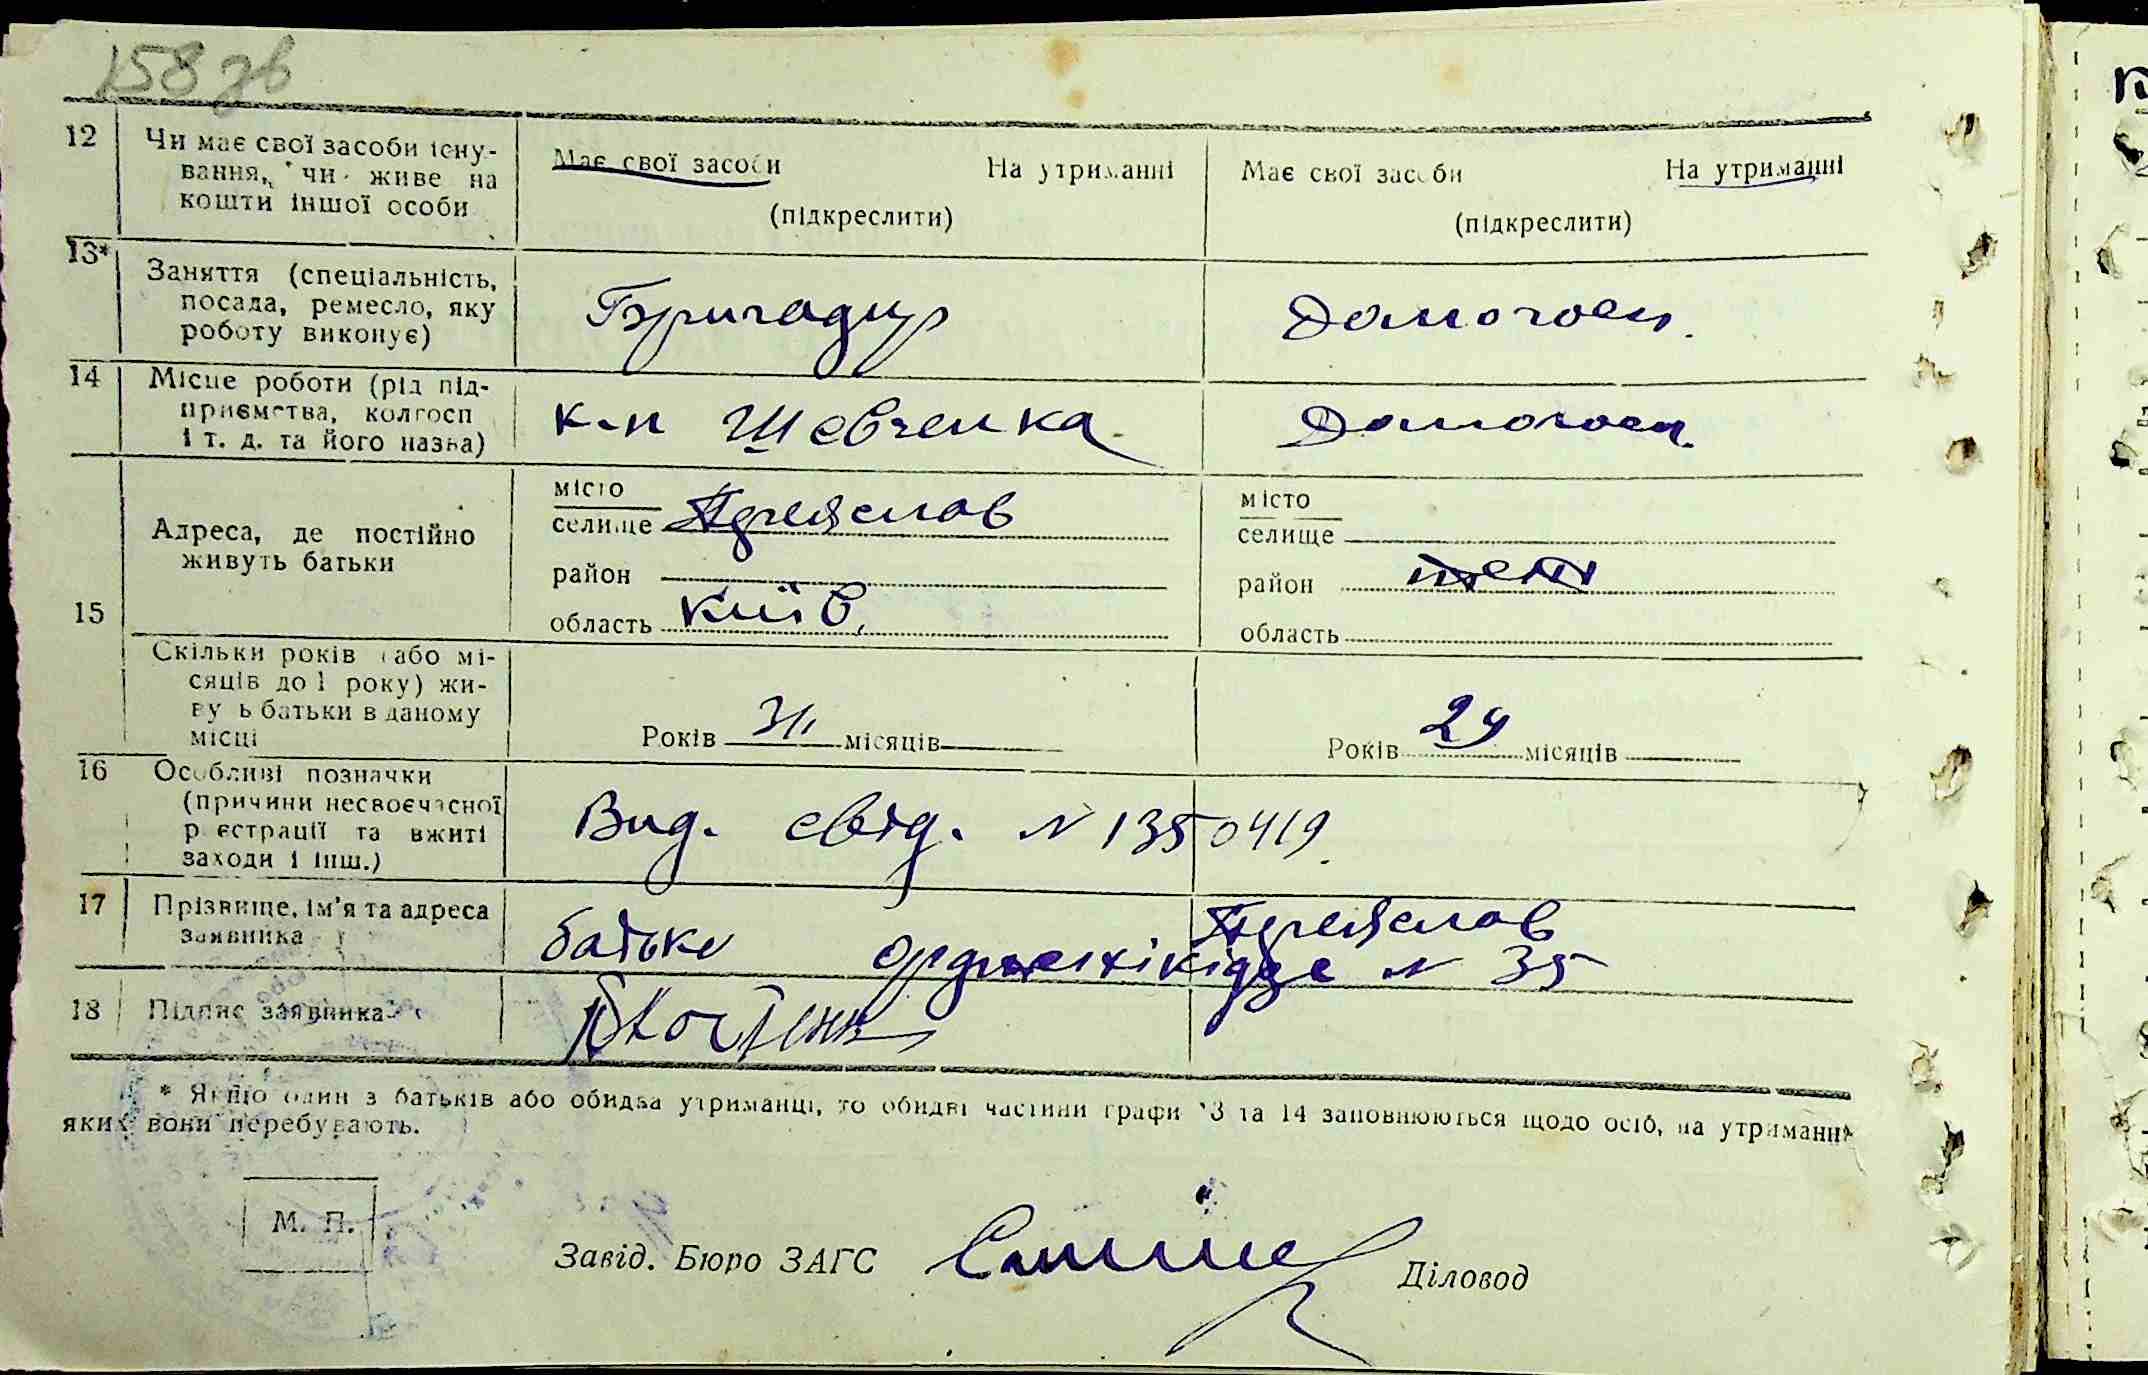 158 зв
12 Чи має свої засоби існу-
вання, чи живе на
кошти іншої особи
Має свої засоби На утриманні
(підкреслити)
Має свої засоби На утриманні
(підкреслити)
13* Заняття (спеціальність,
посада, ремесло, яку
роботу виконує)
Бригадир
Домогосп.
14 Місце роботи (рід під-
приємства, колгосп
і т. д. та його назва)
к-п Шевченка
Домогосп.
15 Адреса, де постійно
живуть батьки
місто
селище Переяслав
район
область Київ.
місто
селище
район
область
Скільки років (або мі-
сяців до 1 року) жи-
вуть батьки в даному
місці
Років 31 місяців
Років 24 місяців
16 Особливі позначки
(причини несвоєчасної
реєстрації та вжиті
заходи і інш.)
Вид. свід. N 1350419.
17 Прізвище, ім'я та адреса
заявника
батько Переяслав
орджонікідзе N 35
18 Підпис заявника
* Якщо один з батьків або обидва утриманці, то обидві частини графи 13 та 14 заповнюються щодо осіб, на утриманні
яких вони перебувають.
М. П.
Завід. Бюро ЗАГС
Діловод